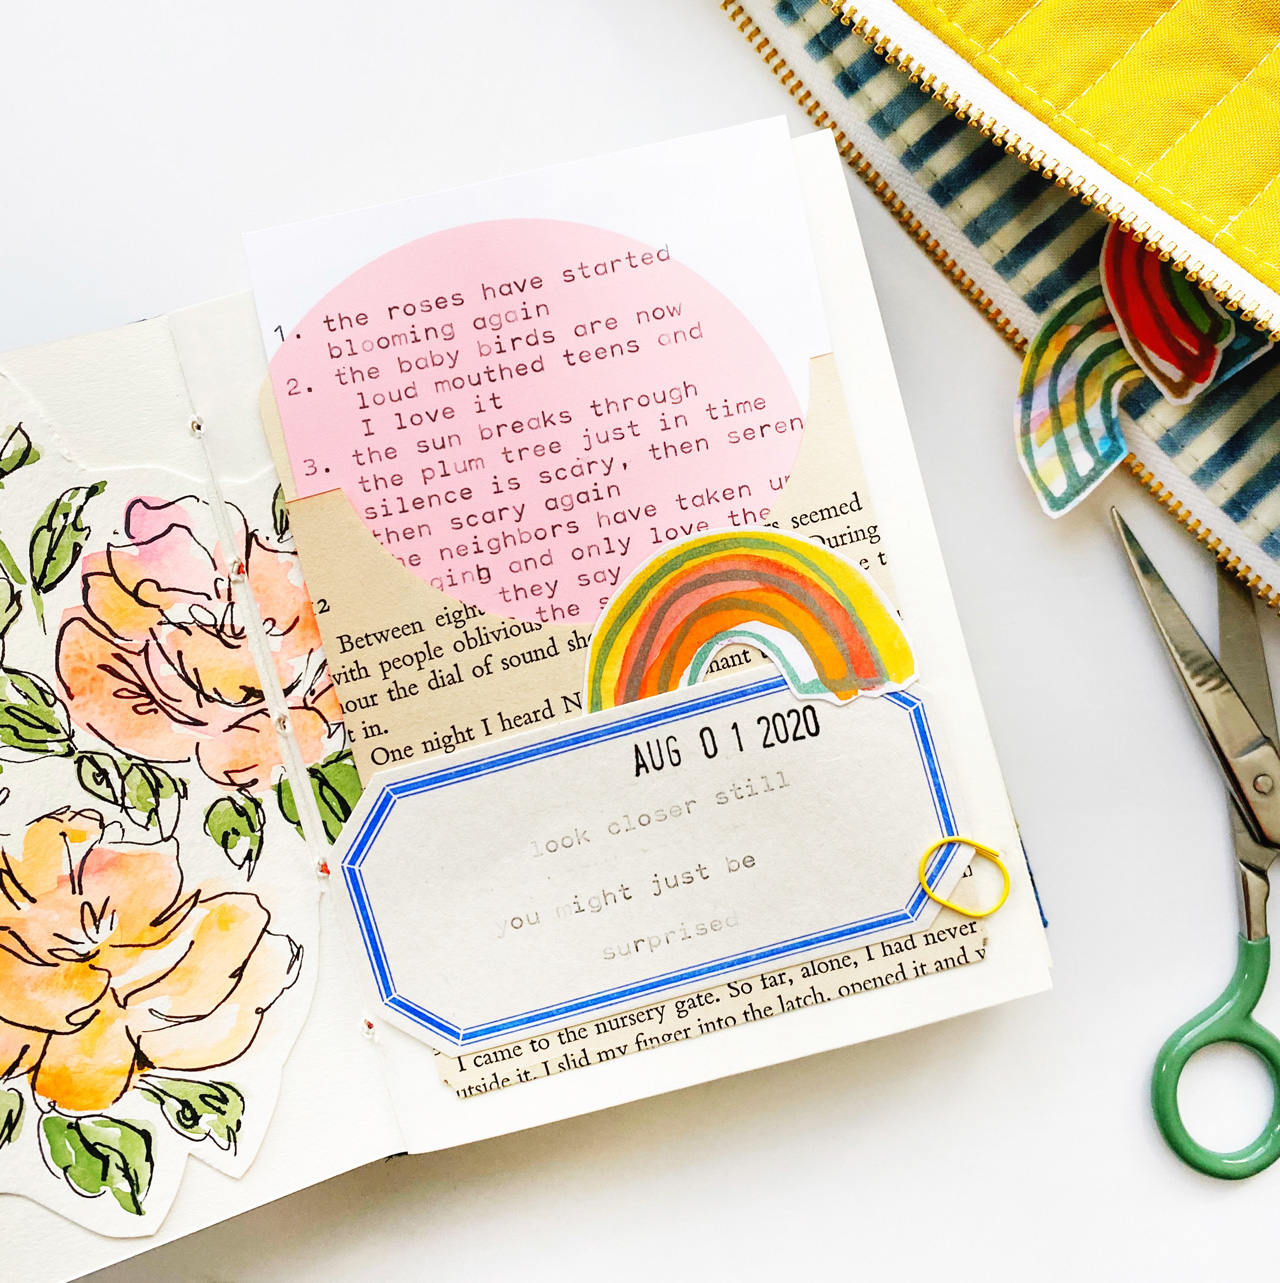 1. the roses have started
blooming again
2. the baby birds are now
loud mouthed teens and
I love it
3. the sun breaks through
the plum tree just in time
silence is scary, then seren
then scary again
he neighbors have taken up
ging and only love the
they say
the s
12
rs seemed
Between eight During
with people oblivious e t
hour the dial of sound sh
t in. nant t
One night I heard N
AUG 0 1 2020
look closer still
you might just be
surprised
n
I had never
I came to the nursery gate. So far, alone,
utside it. I slid my finger into the latch, opened it and v